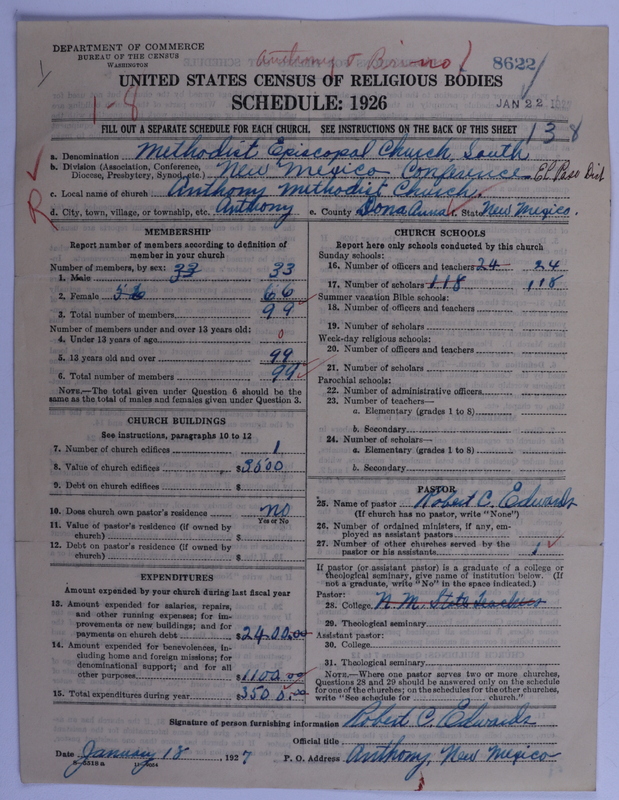 DEPARTMENT OF COMMERCE
BUREAU OF THE CENSUS
WASHINGTON
8622
UNITED STATES CENSUS OF RELIGIOUS BODIES
1-8
SCHEDULE: 1926
JAN 22
FILL OUT A SEPARATE SCHEDULE FOR EACH CHURCH. SEE INSTRUCTIONS ON THE BACK OF THIS SHEET
138
a. Denomination Methodist Episcopal Church, South
b. Division (Association, Conference, Diocese, Presbytery, Synod, etc.) New Mexico Conference El Paso Dist
c. Local name of church Anthony Methodist Church,
R
d. City, town, village, or township, etc. Anthony e. County Dona Anna f. State New Mexico.
MEMBERSHIP
Report number of members according to definition of
member in your church
Number of members, by sex: 33
1. Male 33
2. Female 56 66
3. Total number of members 99
Number of members under and over 13 years old:
4. Under 13 years of age 0
5. 13 years old and over 99
6. Total number of members 99
NOTE.—The total given under Question 6 should be
same as the total of males and females given under Question 3.
CHURCH BUILDINGS
See instructions, paragraphs 10 to 12
7. Number of church edifices 1
8. Value of church edifices $3500
9. Debt on church edifices $
10. Does church own pastor's residence? no
Yes or No
11. Value of pastor's residence (if owned by
church) $
12. Debt on pastor's residence (if owned by
church) $
EXPENDITURES
Amount expended by your church during last fiscal year
13. Amount expended for salaries, repairs,
and other running expenses; for im-
provements or new buildings; and for
payments on church debt $2400.00
14. Amount expended for benevolences, in-
cluding home and foreign missions; for
denominational support; and for all
other purposes $1100.00
15. Total expenditures during year $3500.00
CHURCH SCHOOLS
Report here only schools conducted by this church
Sunday schools:
16. Number of officers and teachers 24 24
17. Number of scholars 118 118
Summer vacation Bible schools:
18. Number of officers and teachers
19. Number of scholars
Week-day religious schools:
20. Number of officers and teachers
21. Number of scholars
Parochial schools:
22. Number of administrative officers
23. Number of teachers—
a. Elementary (grades 1 to 8)
b. Secondary
24. Number of scholars—
a. Elementary (grades 1 to 8)
b. Secondary
PASTOR
25. Name of pastor Robert C. Edwards
(If church has no pastor, write "None")
26. Number of ordained ministers, if any, em-
ployed as assistant pastors
27. Number of other churches served by the
pastor or his assistants 1
If pastor (or assistant pastor) is a graduate of a college or
theological seminary, give name of institution below. (If
not a graduate, write "No" in the space indicated.)
Pastor:
28. College N. M. State Teachers
29. Theological seminary
Assistant pastor:
30. College
31. Theological seminary
NOTE.—Where one pastor serves two or more churches,
Questions 28 and 29 should be answered only on the schedule
for one of the churches; on the schedules for the other churches,
write "See schedule for church."
Signature of person furnishing information Robert C. Edwards
Official title
Date January 18 1927 P. O. Address Anthony, New Mexico